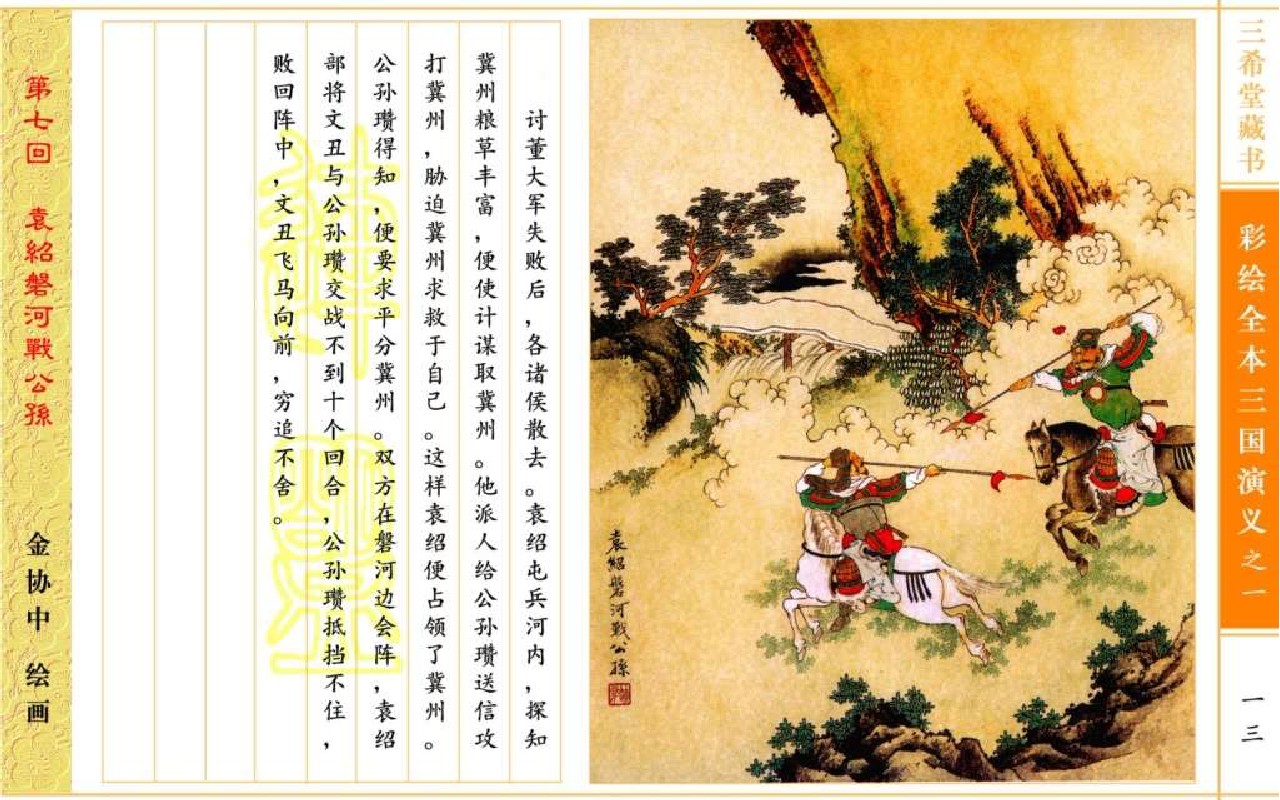 三希堂藏书
彩绘全本三国演义之一
一三
袁紹磐河戰公孫
讨董大军失败后，各诸侯散去。袁绍屯兵河内，探知
冀州粮草丰富，便使计谋取冀州。他派人给公孙瓒送信攻
打冀州，胁迫冀州求救于自己。这样袁绍便占领了冀州。
公孙瓒得知，便要求平分冀州。双方在磐河边会阵，袁绍
部将文丑与公孙瓒交战不到十个回合，公孙瓒抵挡不住，
败回阵中，文丑飞马向前，穷追不舍。
第七回 袁紹磐河戰公孫
金协中 绘画